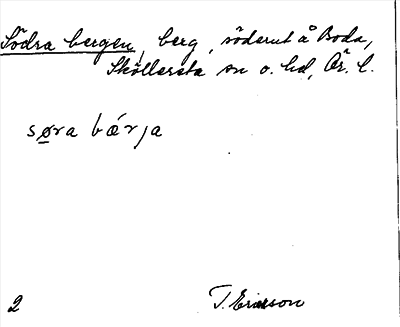 Södra bergen, berg, söderut å Boda,
Sköllersta sn o. hd, Ör. l.
søra bǽrja
2 T. Ericsson